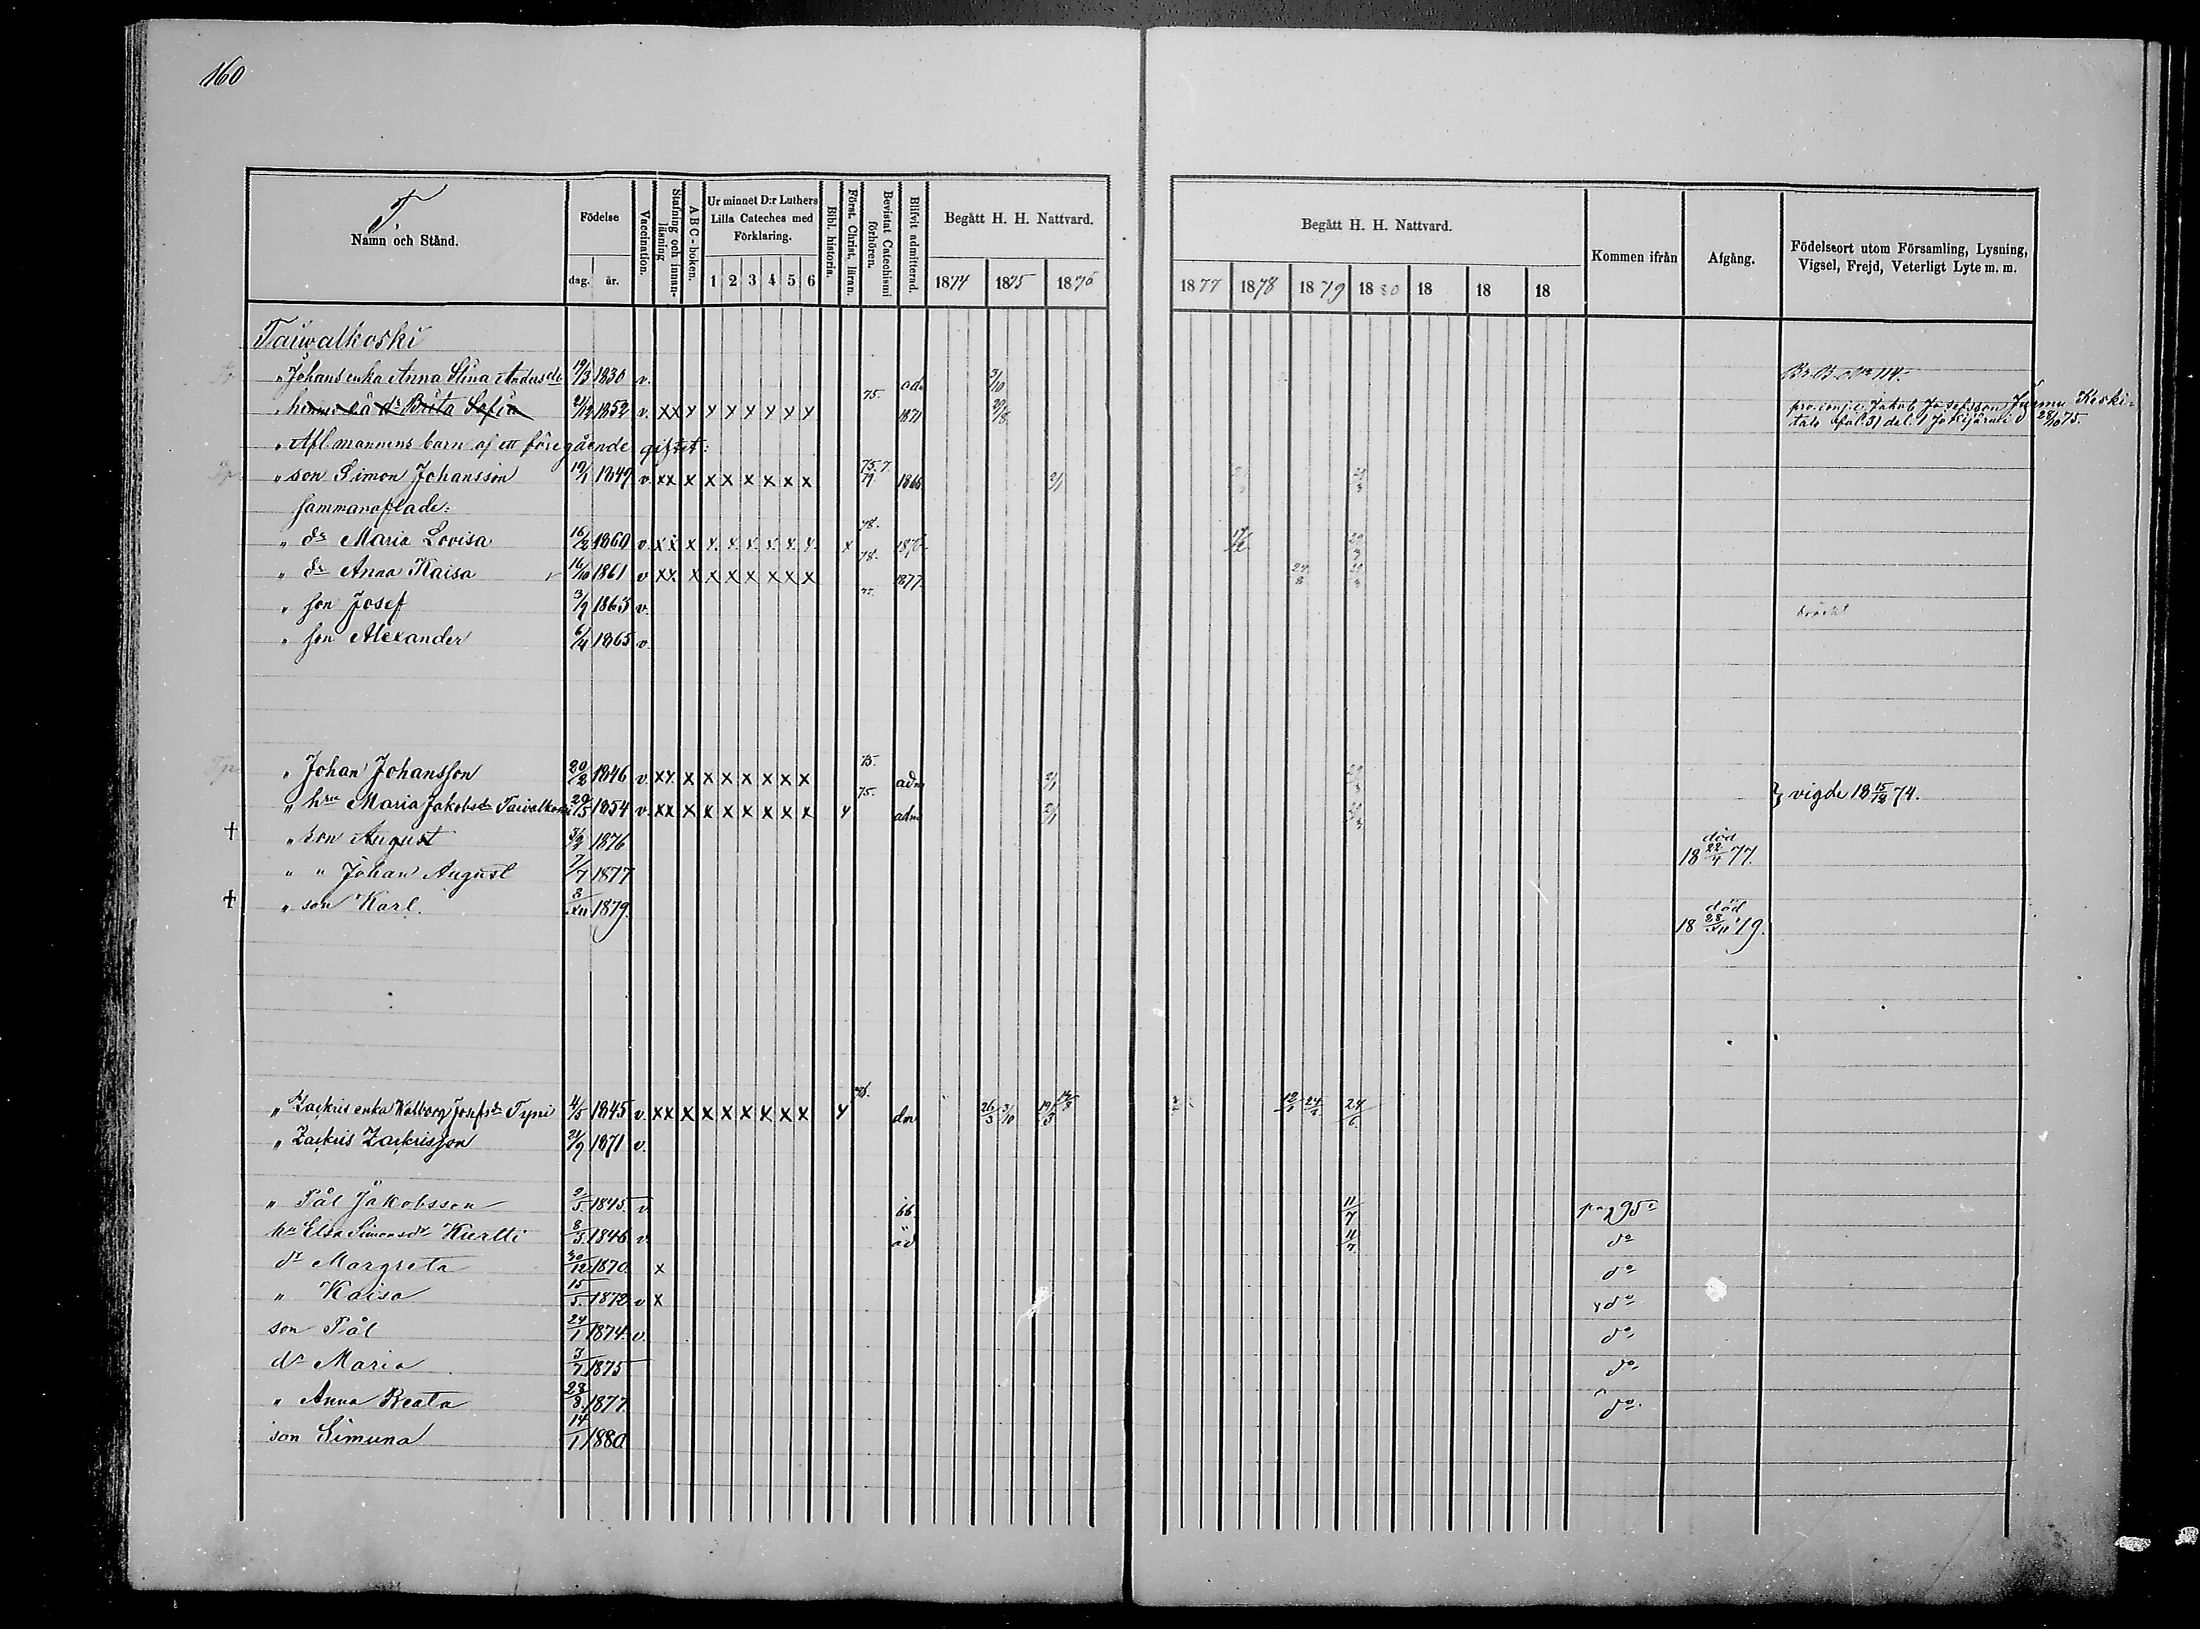 160
T.
Namn och Stånd.
Födelse
dag.
år.
Vaccination.
Stafning och innanläsning
A B C-boken.
Ur minnet D:r Luthers Lilla Cateches med Förklaring.
1 2 3 4 5 6
Bibl. historia.
Först. Christ. läran.
Bevistat Catechismi förhören.
Blifvit admitterad.
Begått H. H. Nattvard.
1874 1875 1876
Begått H. H. Nattvard.
1877 1878 1879 1880 18 18 18
Kommen ifrån
Afgång.
Födelseort utom Församling, Lysning, Vigsel, Frejd, Veterligt Lyte m. m.
Taiwalkoski
" Johans enka Anna Stina Andersdr 19/3 1830 v. ad. 3/10
hennes oä dr Brita Sofia 21/12 1852 v. x x x x x x x x x 75. 1871 29/8 Jakob Josefsson Jurmu Keski-
28/10 75.
" Afl mannens barn af ett föregående giftet:
" son Simon Johansson 19/1 1849 v. x x x x x x x x x 75. 7 79 1866 2/1
sammanaflade:
" dr Maria Lovisa 16/2 1860 v. x x x x x x x x x x 78. 1876
" dr Anna Kaisa 16/10 1861 v x x x x x x x x x 78. 1877. 24/8
" son Josef 3/9 1863 v.
" son Alexander 6/4 1865 v.
" Johan Johansson 20/2 1846 v. x x x x x x x x x 75. adm 2/1
" hru Maria Jakobsdr Taivalkoski 29/5 1854 v. x x x x x x x x x x 75. adm 2/1 } vigde 18 15/12 74.
† " son August 3/2 1876 död 18 22/4 77.
" " Johan August 7/7 1877
† " son Karl. 2/XII 1879. död 18 28/XII 79.
" Zackris enka Walborg Josefsdr Tyni 4/5 1845 v. x x x x x x x x x x 75. dm 26/3 3/10 19/3 12/8 24/8 24/6
" Zackris Zackrisson 21/9 1871 v.
" Pål Jakobsson 9/5 1845. v. 66 11/7 pag 95
hu Elsa Simonsdr Kurtti 8/3 1846 v. ad 11/7 do
dr Margreta 30/12 1870. x do
" Kaisa 15/5. 1872. v x do
son Pål 24/1 1874. v. do
dr Maria 3/7 1875 do
" Anna Beata 28/8 1877. do
son Simuna 14/1 1880